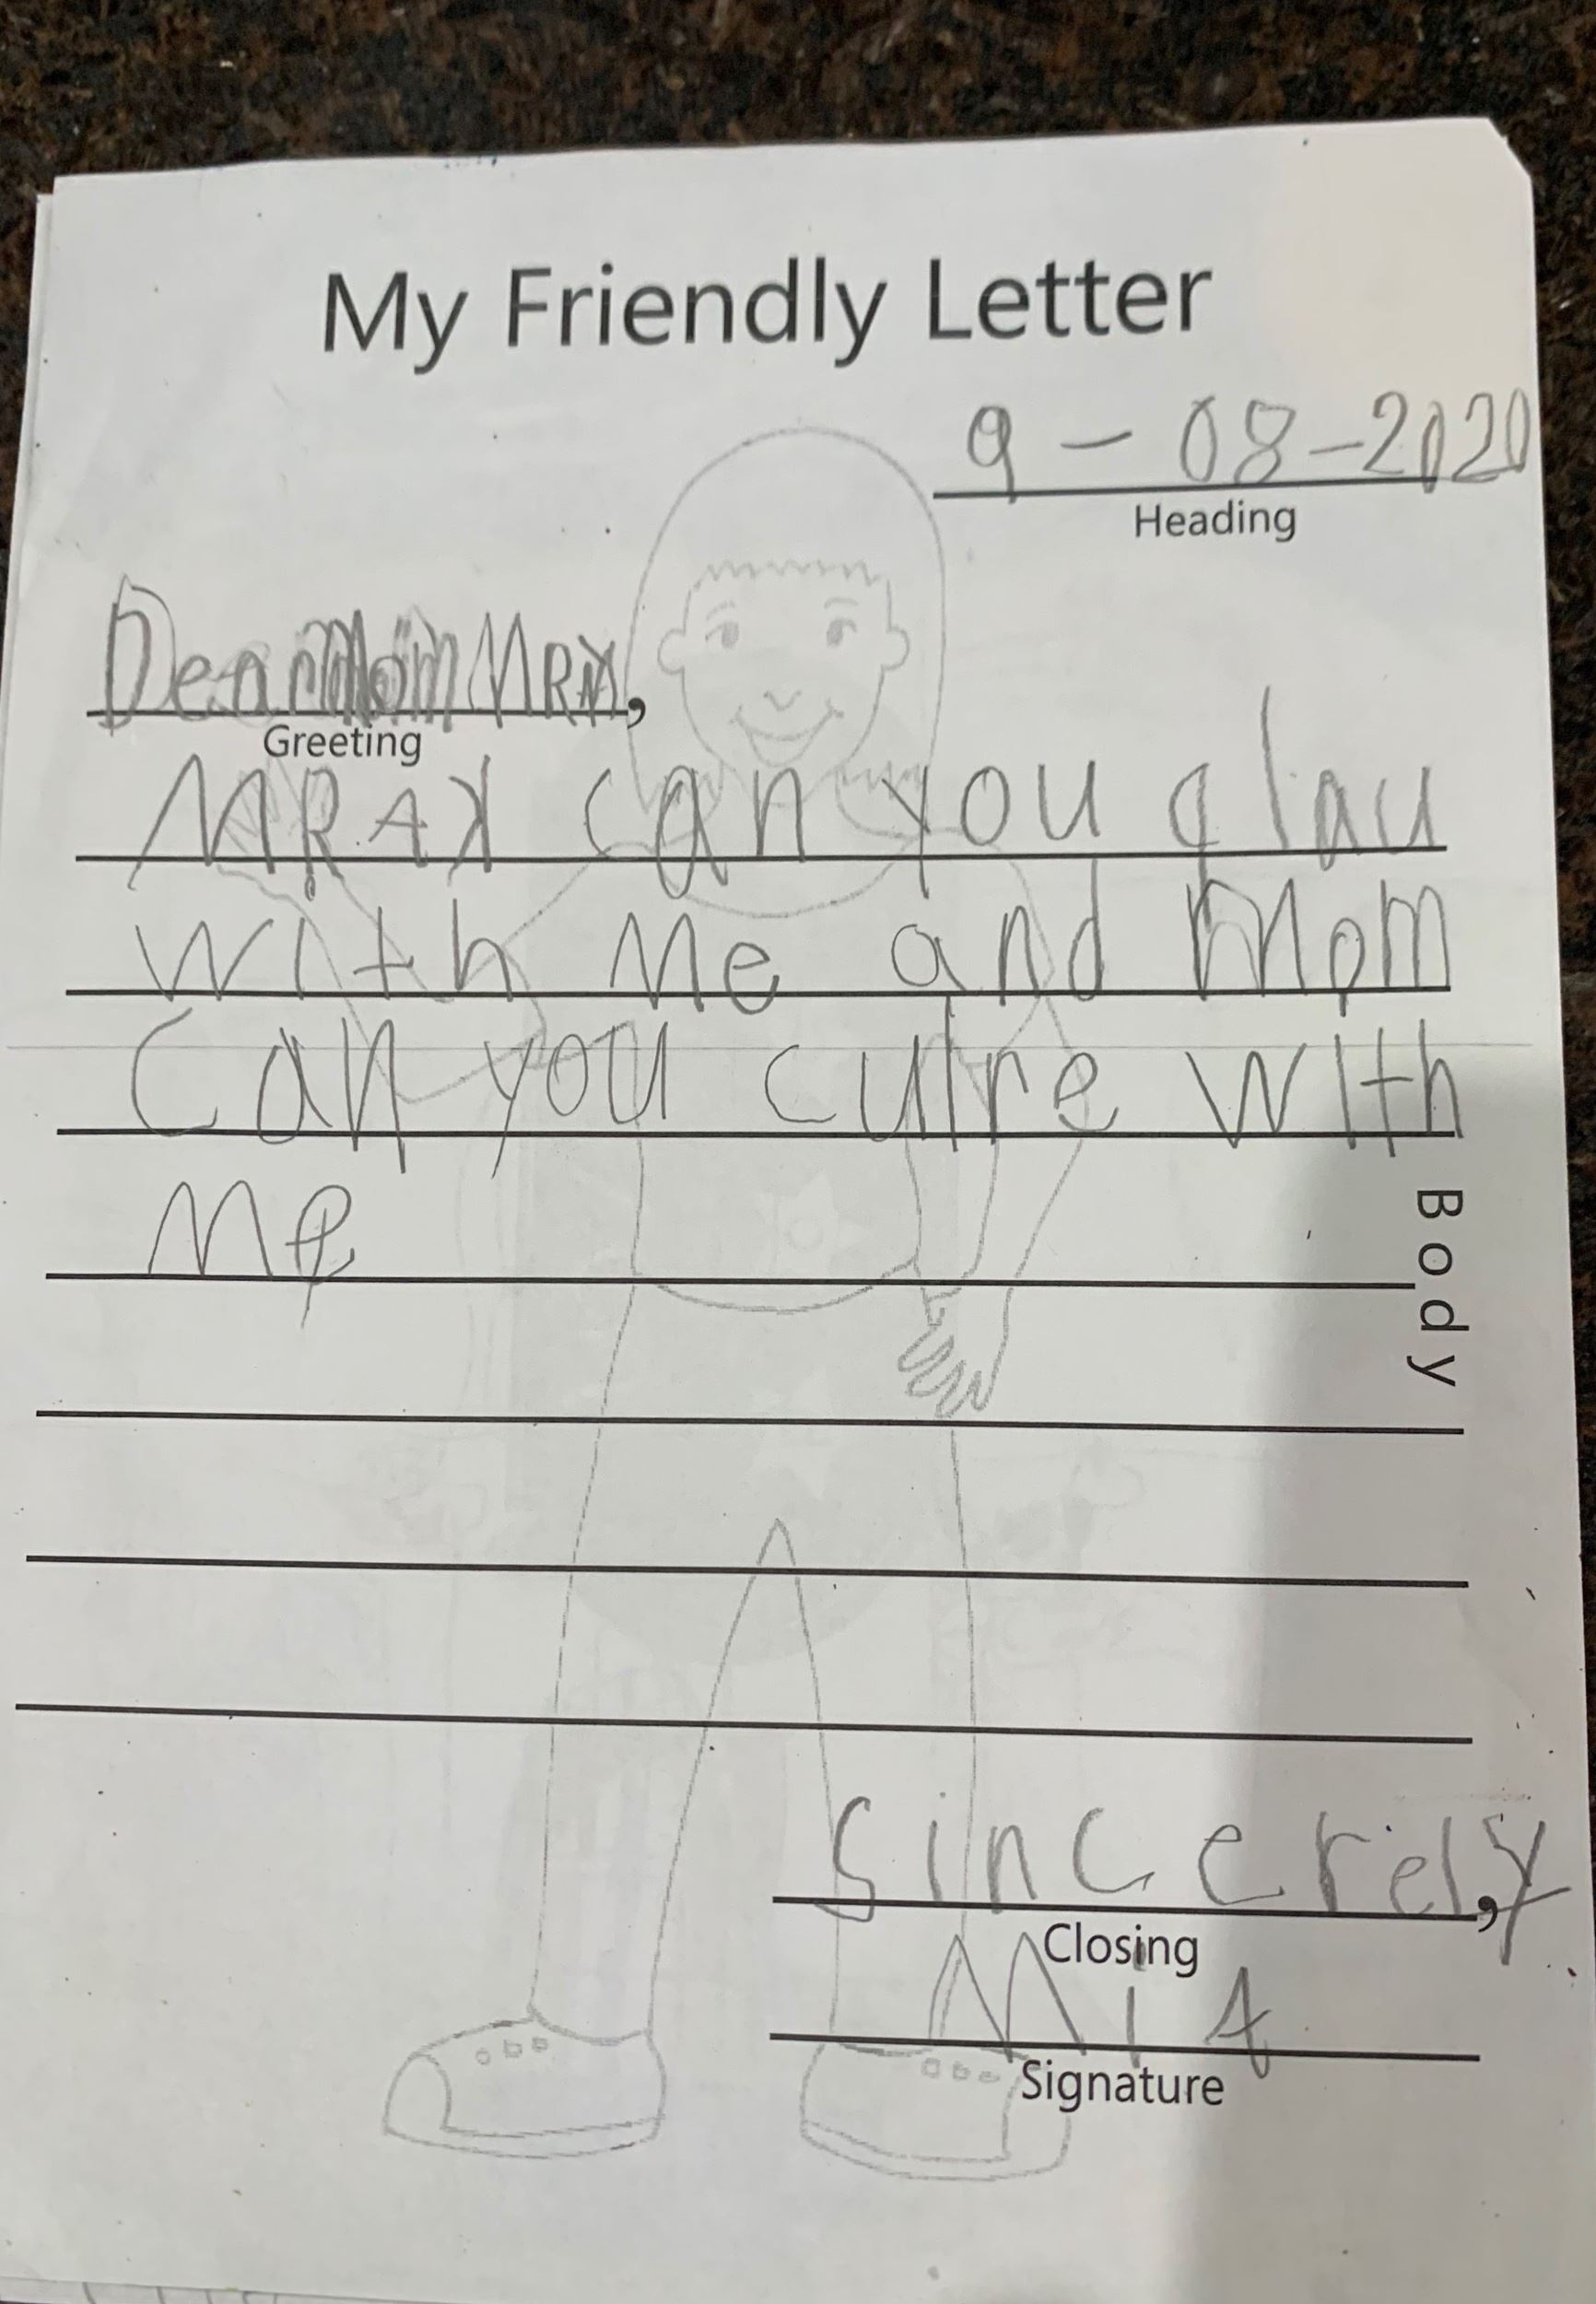 My Friendly Letter
9 - 08 - 2020
Heading
Dear Mom
,
Greeting
can you
with Me and Mom
Can you culre with
Me
Body
sincerely,
Closing
MiA
Signature